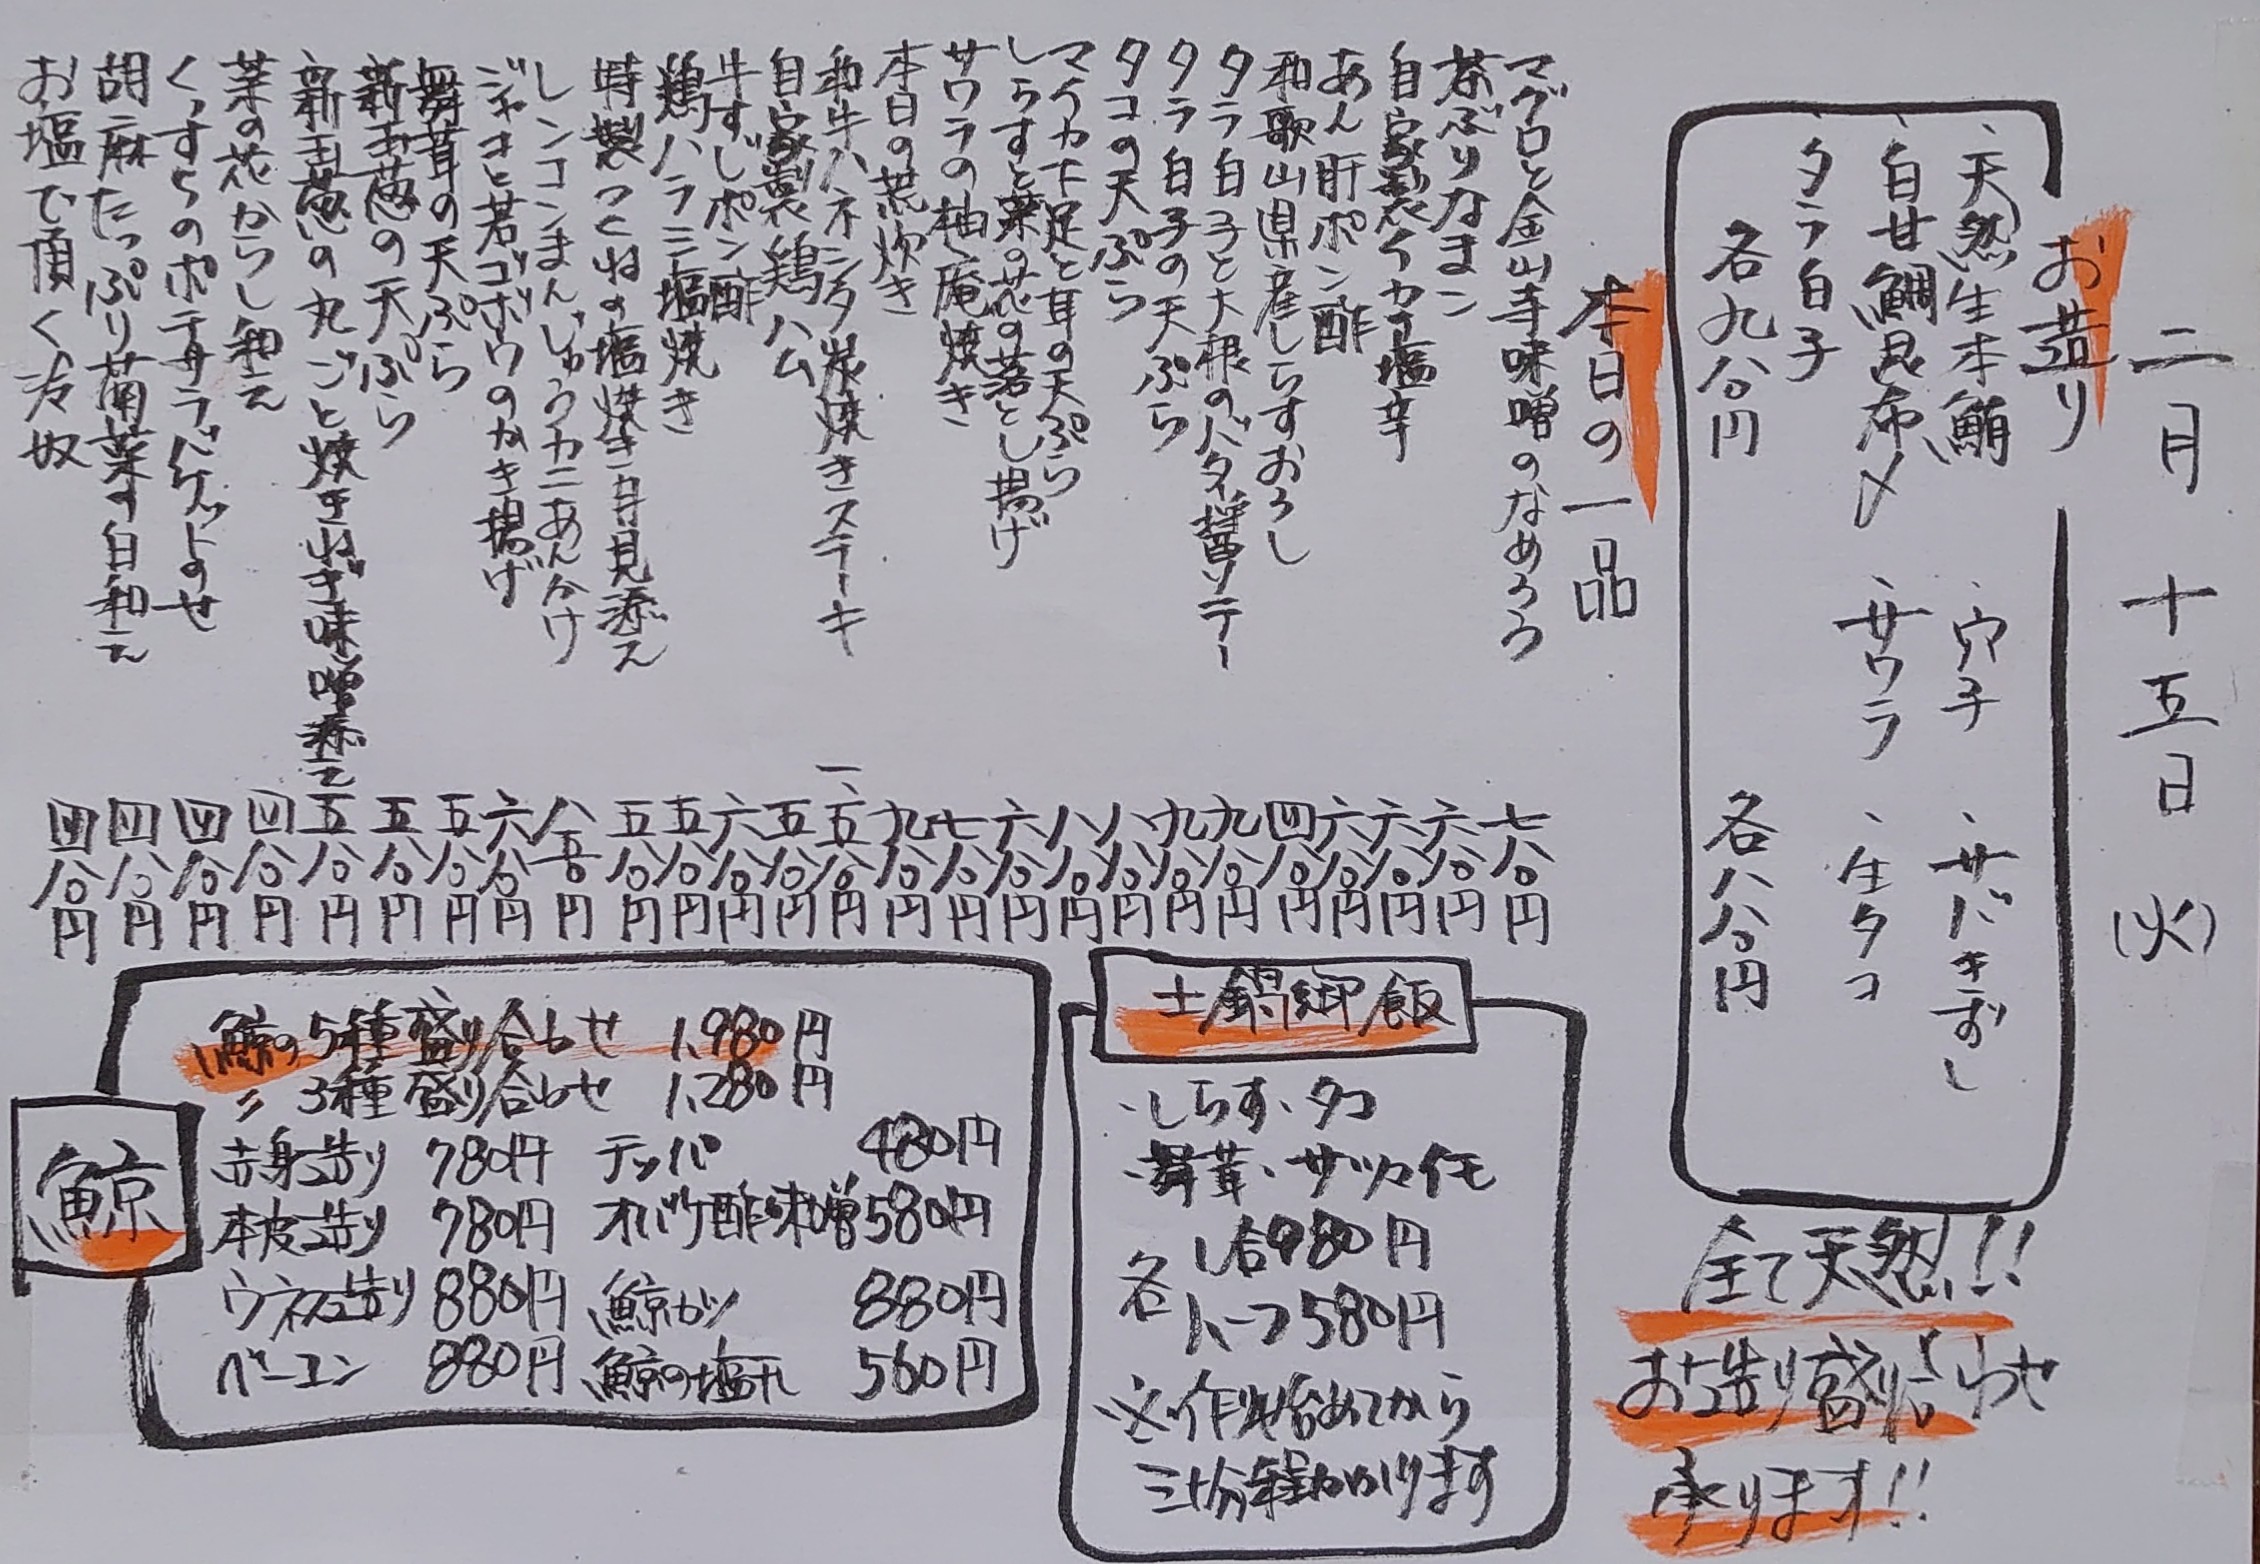 二月十五日(火)
お造り
、天然生本鮪 、穴子 、サバきずし
、白甘鯛昆布〆 、サワラ 、生タコ
、タラ白子
各九八〇円 各八八〇円
全て天然!!
お造り盛り合わせ
承ります!!
本日の一品
マグロと金山寺味噌のなめろう 七八〇円
茶ぶりなまこ 六八〇円
自家製イカ塩辛 六八〇円
あん肝ポン酢 六八〇円
和歌山県産しらすおろし 四八〇円
タラ白子と大根のバター醤ソテー 九八〇円
タラ白子の天ぷら 九八〇円
タコの天ぷら 八八〇円
マイカ下足と耳の天ぷら 八八〇円
しらすと菜の花の落とし揚げ 六八〇円
サワラの柚庵焼き 七八〇円
本日の荒炊き 九八〇円
和牛ハネシタ炭焼きステーキ 一、五八〇円
自家製鶏ハム 五八〇円
牛すじポン酢 六八〇円
鶏ハラミ塩焼き 五八〇円
特製つくねの塩焼き月見添え 五八〇円
レンコンまんじゅうカニあんかけ 八五〇円
ジャコと若ゴボウのかき揚げ 六八〇円
舞茸の天ぷら 五八〇円
新玉葱の天ぷら 五八〇円
新玉葱の丸ごと焼きねぎ味噌添え 五八〇円
菜の花からし和え 四八〇円
くっすらのポテサラバゲットのせ 四八〇円
胡麻たっぷり菊菜の白和え 四八〇円
お塩で頂く冷奴 四八〇円
土鍋御飯
・しらす・タコ
・舞茸・サツマイモ
各 1合980円
ハーフ580円
※作り始めてから
三十分程かかります
鯨
鯨の5種盛り合わせ 1,980円
〃 3種盛り合わせ 1,280円
赤身造り 780円 テッパ 480円
本皮造り 780円 オバケ酢味噌 580円
ウネス造り 880円 鯨カツ 880円
ベーコン 880円 鯨の塩タレ 560円